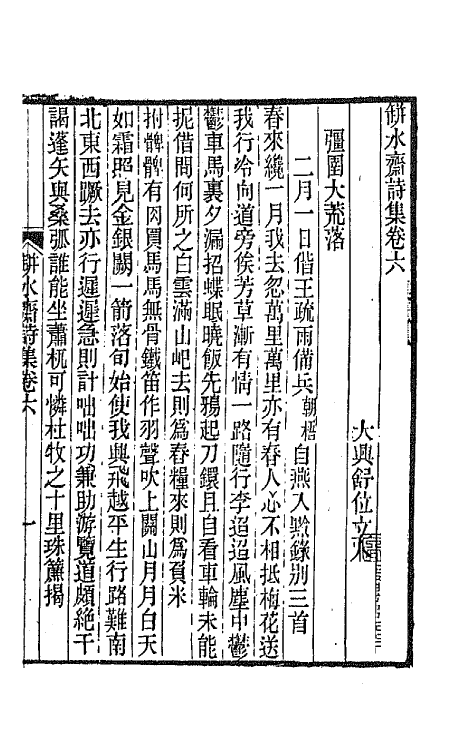 缾水齋詩集卷六
大興舒位立人
彊圉大荒落
二月一日偕王疏雨備兵朝梧自燕入黔錄別三首
春來纔一月我去忽萬里萬里亦有春人心不相抵梅花送
我行冷向道旁俟芳草漸有情一路隨行李迢迢風塵中鬱
鬱車馬裏夕漏招蝶眠曉飯先鴉起刀鐶且自看車輪未能
抳借問何所之白雲滿山屺去則爲舂糧來則爲負米
拊髀髀有肉買馬馬無骨鐵笛作羽聲吹上關山月月白天
如霜照見金銀闕一箭落旬始使我興飛越平生行路難南
北東西蹶去亦行遲遲急則計咄咄功兼助游覽道頗絕干
謁蓬矢與桑弧誰能坐蕭杌可憐杜牧之十里珠簾揭
缾水齋詩集卷六
一